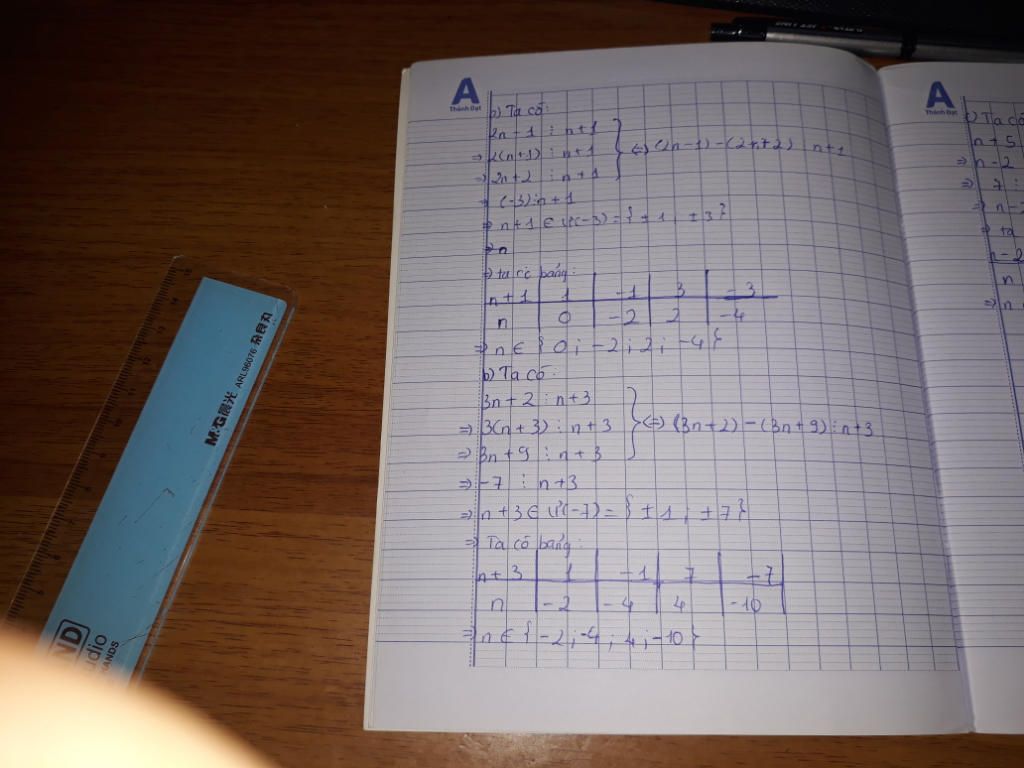 A
Thành Đạt
b) Ta có:
2n - 1 ⋮ n+1
⇒ 2(n+1) ⋮ n+1 } ⇔ (2n-1) - (2n+2) ⋮ n+1
⇒ 2n+2 ⋮ n+1
⇒ (-3) ⋮ n+1
⇒ n+1 ∈ Ư(-3) = { ±1, ±3 }
⇒ n
⇒ ta có bảng:
n+1 | 1 | -1 | 3 | -3
n | 0 | -2 | 2 | -4
⇒ n ∈ { 0; -2; 2; -4 }
b) Ta có:
3n + 2 ⋮ n+3
⇒ 3(n+3) ⋮ n+3 } ⇔ (3n+2) - (3n+9) ⋮ n+3
⇒ 3n+9 ⋮ n+3
⇒ -7 ⋮ n+3
⇒ n+3 ∈ Ư(-7) = { ±1, ±7 }
⇒ Ta có bảng:
n+3 | 1 | -1 | 7 | -7
n | -2 | -4 | 4 | -10
⇒ n ∈ { -2; -4; 4; -10 }
A
Thành Đạt
c) Ta có
n + 5
⇒ n - 2
⇒ 7 ⋮
⇒ n -
⇒ ta
n - 2
n
⇒ n
M&G晨光 ARL96076 杂良丸
ND
udio